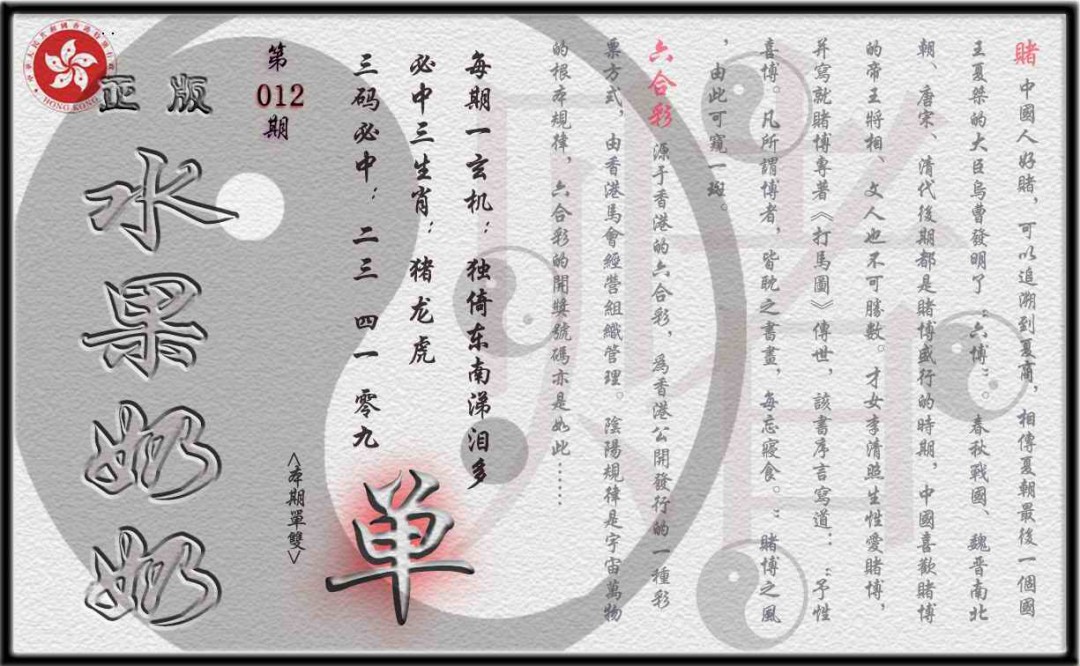 賭 中國人好賭，可以追溯到夏商，相傳夏朝最後一個國
王夏桀的大臣烏曹發明了“六博”。春秋戰國、魏晉南北
朝、唐宋、清代後期都是賭博盛行的時期，中國喜歡賭博
的帝王將相、文人也不可勝數。才女李清照生性愛賭博，
并寫就賭博專著《打馬圖》傳世，該書序言寫道：“予性
喜博。凡所謂博者，皆耽之書畫，每忘寢食。”賭博之風
，由此可窺一斑。
六合彩 源于香港的六合彩，為香港公開發行的一種彩
票方式，由香港馬會經營組織管理。陰陽規律是宇宙萬物
的根本規律，六合彩的開獎號碼亦是如此……
每期一玄机：独倚东南涕泪多
必中三生肖：猪龙虎
三码必中：二三 四一 零九
单
<本期單雙>
第
012
期
正版
水果奶奶
HONG KONG